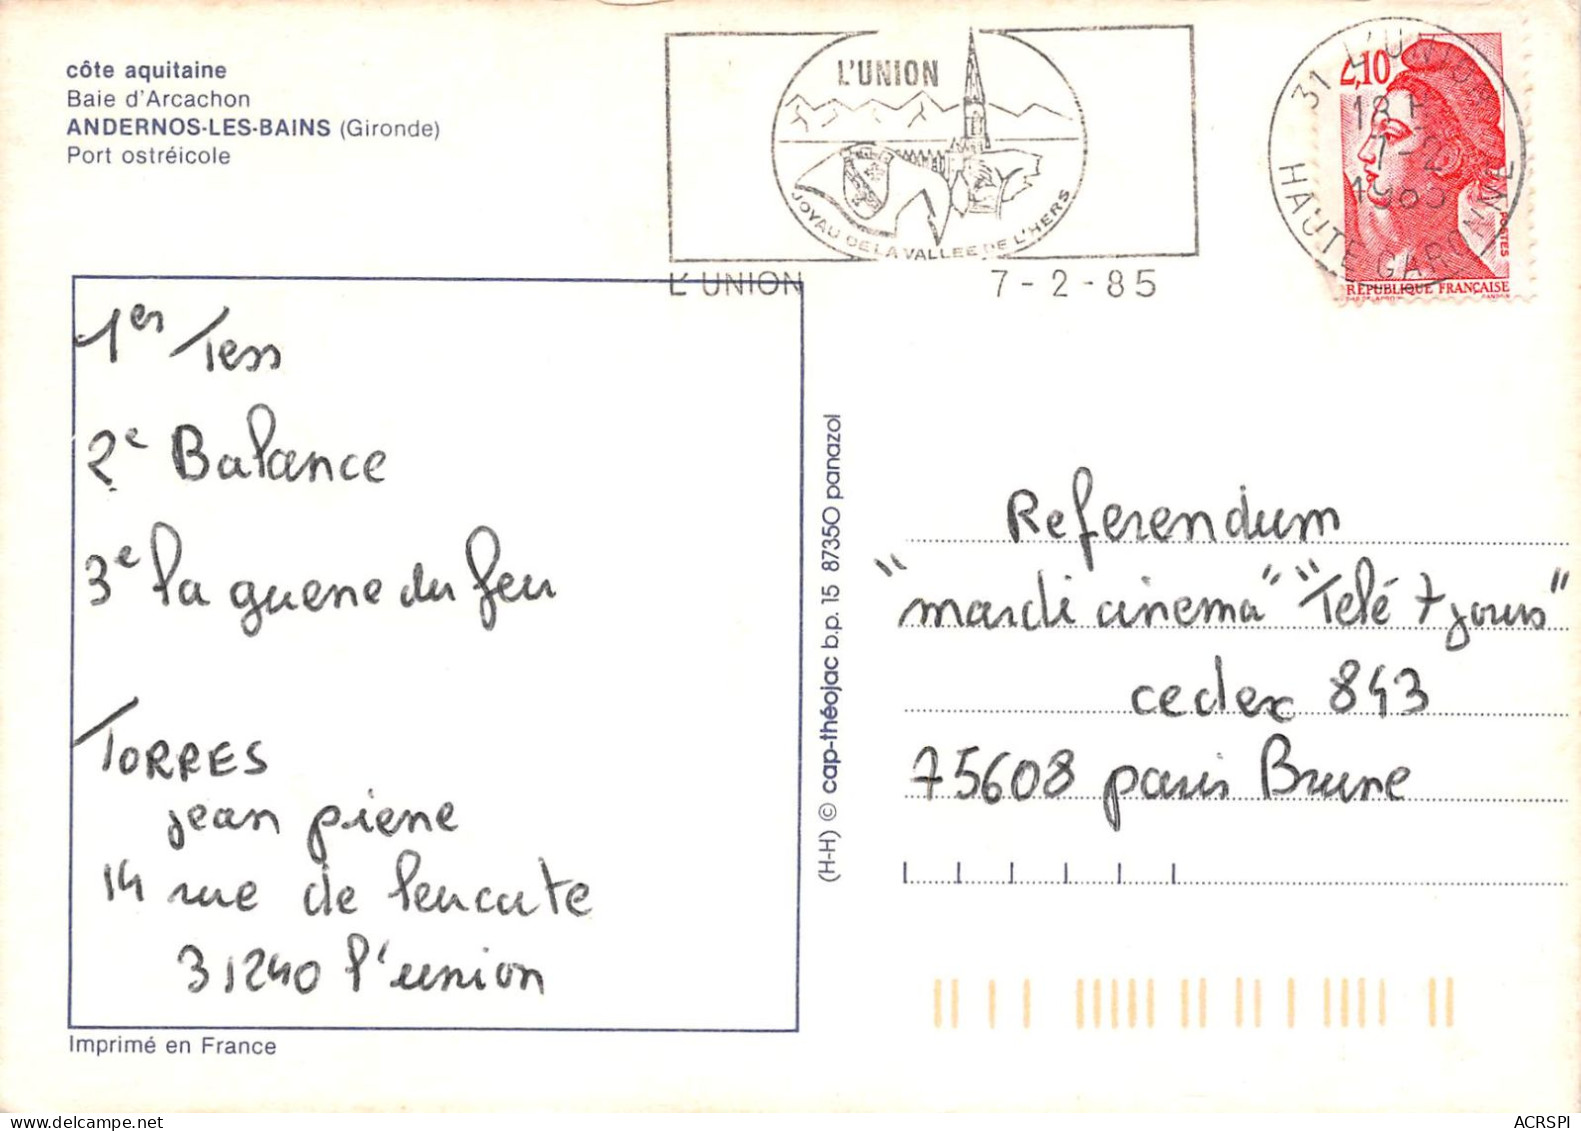 côte aquitaine
Baie d'Arcachon
ANDERNOS-LES-BAINS (Gironde)
Port ostréicole
L'UNION
JOYAU DE LA VALLEE DE L'HERS
L'UNION 7-2-85
31 L'UNION
18 H
7-2
1985
HAUTE GARONNE
2,10
POSTES
RÉPUBLIQUE FRANÇAISE
1er Tess
2e Balance
3e la guerre du feu
TORRES
jean pierre
14 rue de leucate
31240 l'union
Imprimé en France
(H-H) © cap-théojac b.p. 15 87350 panazol
Referendum
"mardi cinema" "Telé 7 jours"
cedex 843
75608 paris Brune
ACRSPI